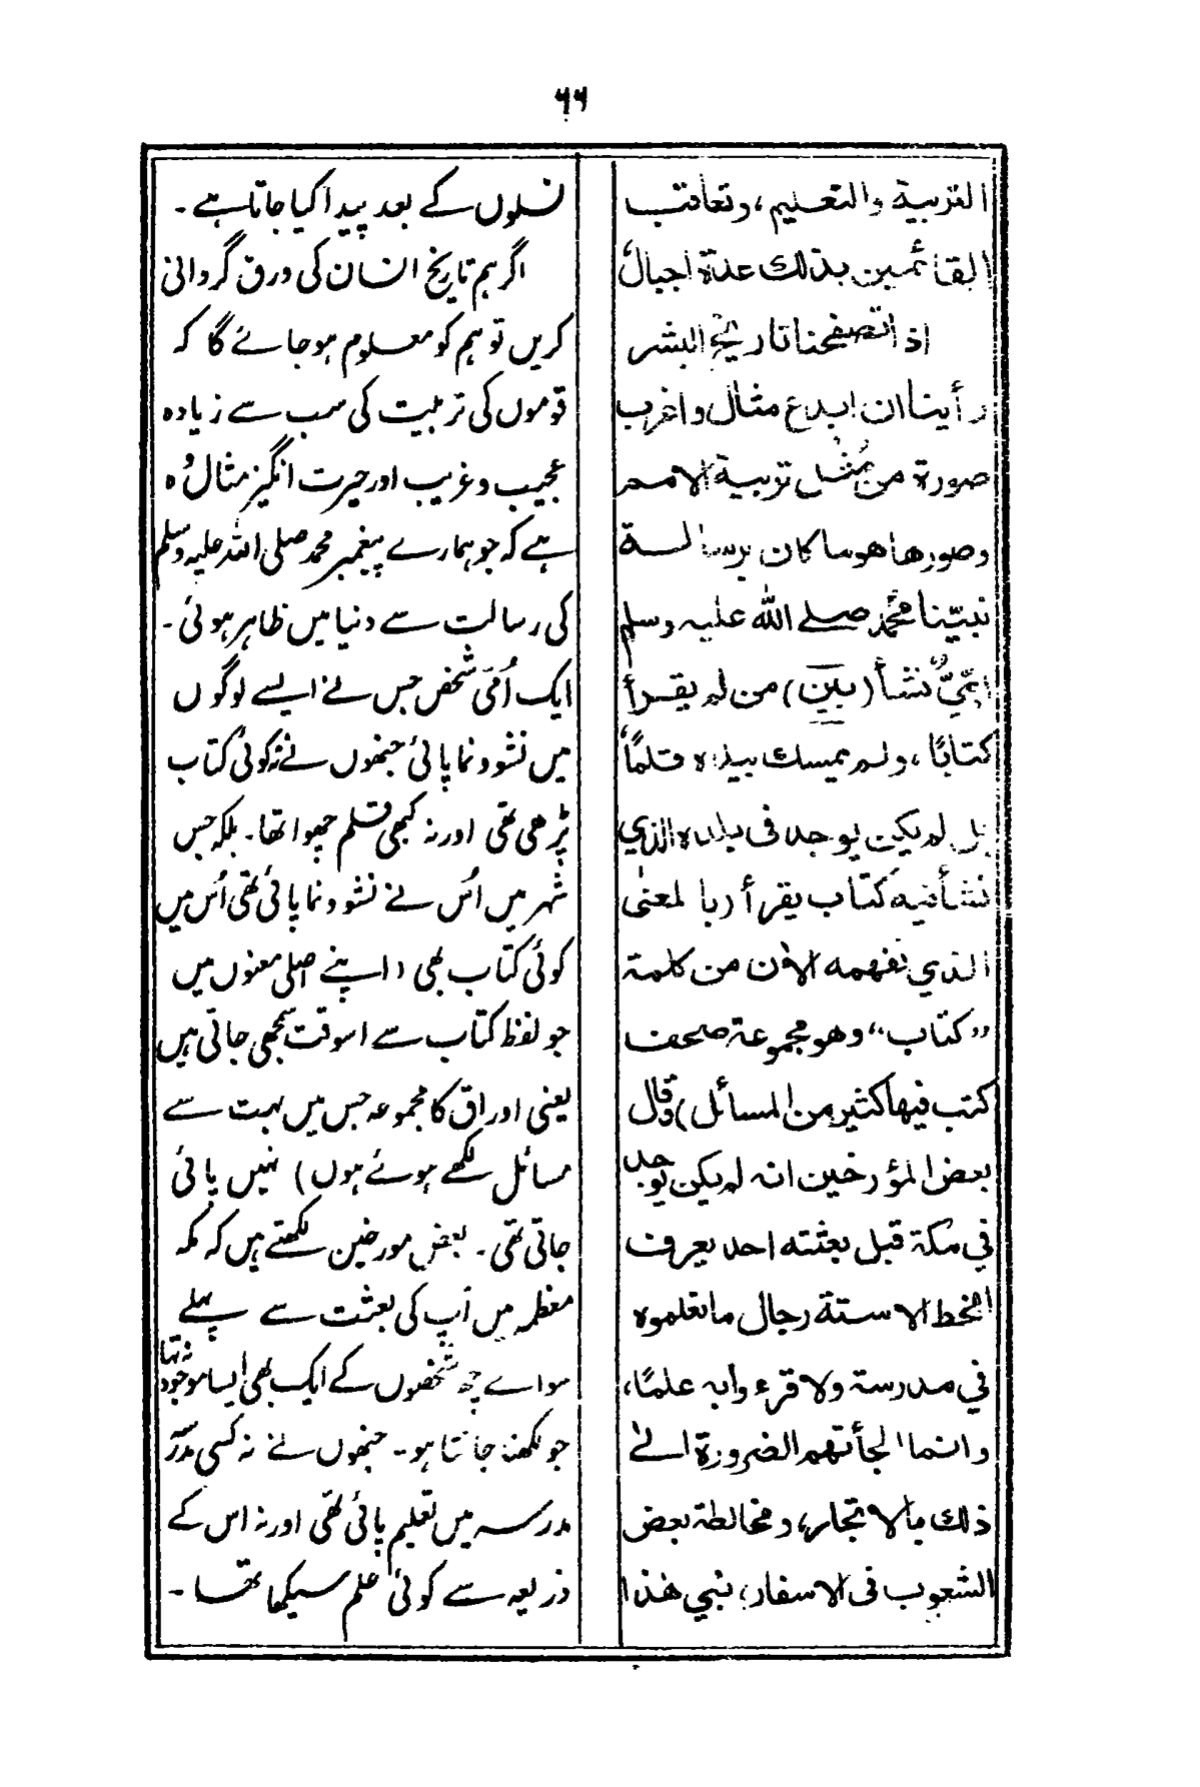 ٦٦
التربية والتعليم، وتعاقب
القائمين بذلك عدة اجيال
اذا تصفحنا تاريخ البشر
رأينا ان ابدع مثال واغرب
صورة من مُثُل تربية الامم
وصورها هو ما كان برسالة
نبيّنا محمّد صلے الله عليه وسلم
امّيٌّ نشأ (بين) من لم يقرأ
كتابًا، ولم يمسك بيده قلمًا
بل لم يكن يوجد فى بلده الذي
نشأ فيه كتاب يقرأ (با لمعنى
الذي نفهمه الآن من كلمة
”كتاب“ وهو مجموعة صحف
كتب فيها كثير من المسائل) وقال
بعض المؤرخين انه لم يكن يوجد
في مكة قبل بعثته احد يعرف
الخط الا ستة رجال ما تعلموه
في مدرسة ولا قرءوا به علمًا،
وانما الجأتهم الضرورة الى
ذلك بالاتجار، ومخالطة بعض
الشعوب فى الاسفار، نبي هذا
نسلوں کے بعد پیدا کیا جاتا ہے۔
اگر ہم تاریخ انسان کی ورق گردانی
کریں تو ہم کو معلوم ہو جائے گا کہ
قوموں کی تربیت کی سب سے زیادہ
عجیب و غریب اور حیرت انگیز مثال وُہ
ہے کہ جو ہمارے پیغمبر محمد صلی اللہ علیہ وسلم
کی رسالت سے دنیا میں ظاہر ہوئی۔
ایک اُمّی شخص جس نے ایسے لوگوں
میں نشو و نما پائی جنھوں نے نہ کوئی کتاب
پڑھی تھی اور نہ کبھی قلم چھوا تھا۔ بلکہ جس
شہر میں اُس نے نشو و نما پائی تھی اُس میں
کوئی کتاب بھی (اپنے اصلی معنوں میں
جو لفظ کتاب سے اسوقت سمجھی جاتی ہیں
یعنی اوراق کا مجموعہ جس میں بہت سے
مسائل لکھے ہوئے ہوں) نہیں پائی
جاتی تھی۔ بعض مورخین لکھتے ہیں کہ مکہ
معظمہ میں آپ کی بعثت سے پہلے
سواے چھ شخصوں کے ایک بھی ایسا موجود نہ تھا
جو لکھنا جانتا ہو۔ جنھوں نے نہ کسی
مدرسہ میں تعلیم پائی تھی اور نہ اس کے
ذریعہ سے کوئی علم سیکھا تھا۔